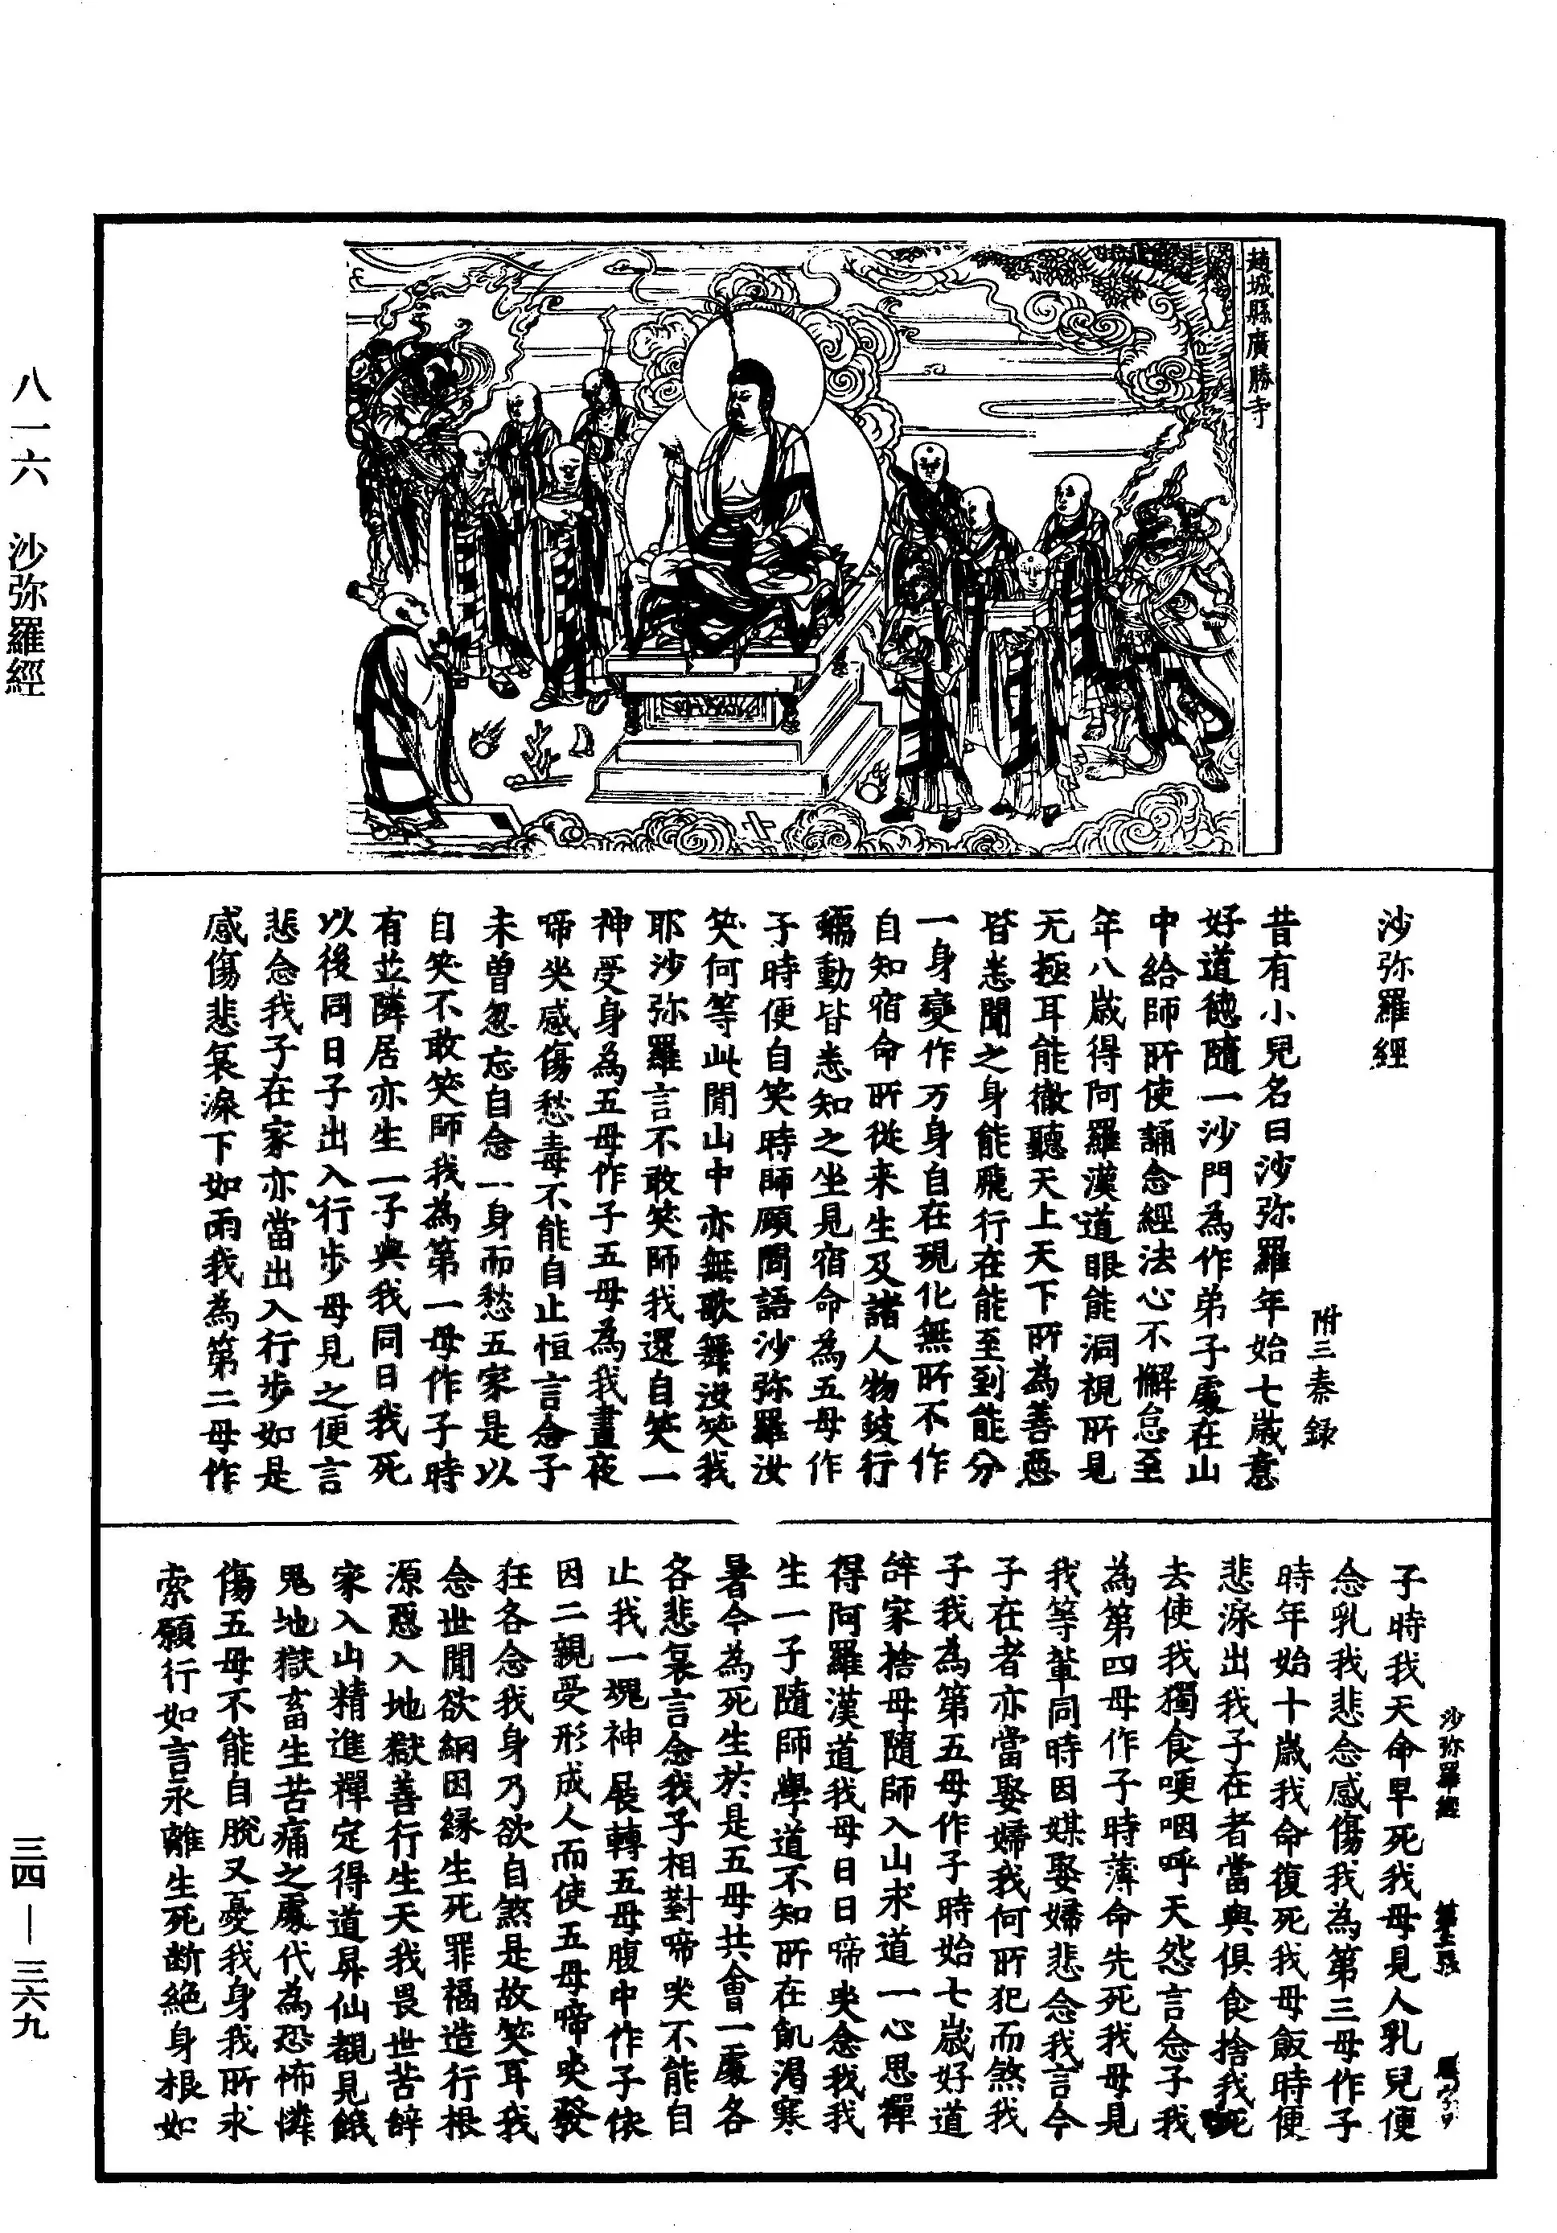 趙城縣廣勝寺
八一六 沙弥羅經
沙弥羅經
附三秦録
昔有小兒名曰沙弥羅年始七歲意
好道德隨一沙門為作弟子處在山
中給師所使誦念經法心不懈怠至
年八歲得阿羅漢道眼能洞視所見
无極耳能徹聽天上天下所為善惡
皆悉聞之身能飛行在能至到能分
一身變作万身自在現化無所不作
自知宿命所從来生及諸人物蚑行
蠕動皆悉知之坐見宿命為五母作
子時便自笑時師顧問語沙弥羅汝
笑何等此閒山中亦無歌舞汝笑我
耶沙弥羅言不敢笑師我還自笑一
神受身為五母作子五母為我晝夜
啼哭感傷愁毒不能自止恒言念子
未曽忽忘自念一身而愁五家是以
自笑不敢笑師我為第一母作子時
有並隣居亦生一子與我同日我死
以後同日子出入行步母見之便言
悲念我子在家亦當出入行步如是
感傷悲哀淚下如雨我為第二母作
沙弥羅經
子時我天命早死我母見人乳兒便
念乳我悲念感傷我為第三母作子
時年始十歲我命復死我母飯時便
悲淚出我子在者當與俱食捨我死
去使我獨食哽咽呼天怨言念子我
為第四母作子時薄命先死我母見
我等輩同時因媒娶婦悲念我言今
子在者亦當娶婦我何所犯而煞我
子我為第五母作子時始七歲好道
辝家捨母隨師入山求道一心思禪
得阿羅漢道我母日日啼哭念我我
生一子隨師學道不知所在飢渴寒
暑今為死生於是五母共會一處各
各悲哀言念我子相對啼哭不能自
止我一塊神展轉五母腹中作子依
因二親受形成人而使五母啼哭發
狂各念我身乃欲自煞是故笑耳我
念世閒欲網因緣生死罪福造行根
源惡入地獄善行生天我畏世苦辝
家入山精進禪定得道昇仙觀見餓
鬼地獄畜生苦痛之處代為恐怖憐
傷五母不能自脫又憂我身我所求
索願行如言永離生死断絕身根如
三四—三六九